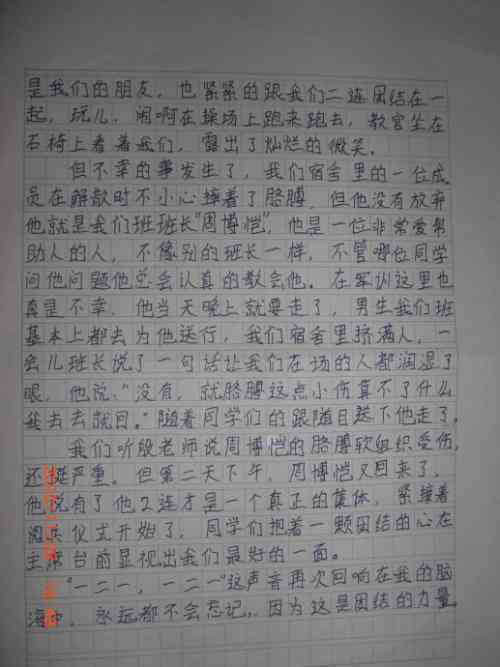 是我们的朋友，也紧紧的跟我们二连团结在一
起，玩儿，闹啊在操场上跑来跑去，教官坐在
石椅上看着我们，露出了灿烂的微笑。
但不幸的事发生了，我们宿舍里的一位成
员在解散时不小心摔着了胳膊，但他没有放弃
他就是我们班班长“周博恺”，他是一位非常爱帮
助人的人，不像别的班长一样，不管哪位同学
问他问题他总会认真的教会他。在军训这里也
真是不幸，他当天晚上就要走了，男生我们班
基本上都去为他送行，我们宿舍里挤满人，一
会儿班长说了一句话让我们在场的人都润湿了
眼，他说，“没有，就胳膊这点小伤算不了什么
我去去就回。”随着同学们的跟随目送下他走了。
我们听殷老师说周博恺的胳膊软组织受伤，
还挺严重。但第二天下午，周博恺又回来了，
他说有了他2连才是一个真正的集体，紧接着
阅兵仪式开始了，同学们抱着一颗团结的心在
主席台前显视出我们最好的一面。
“一二一，一二一”这声音再次回响在我的脑
海中，永远都不会忘记，因为这是团结的力量